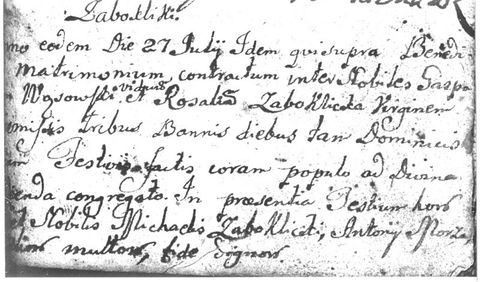 Zaboklik.
mo eodem Die 27 Julij Idem qui supra Benedi
matrimonium contractum inter Nobiles Gaspa
Wysowski viduus et Rosaliã Zaboklicka Virginem
omissis tribus Bannis diebus tam Dominicis
Festivis factis coram populo ad Divina
enda congregato. In praesentia Testium hors
t Nobilis Michaelis Zaboklicki, Antony Morza
multors, fide dignors.